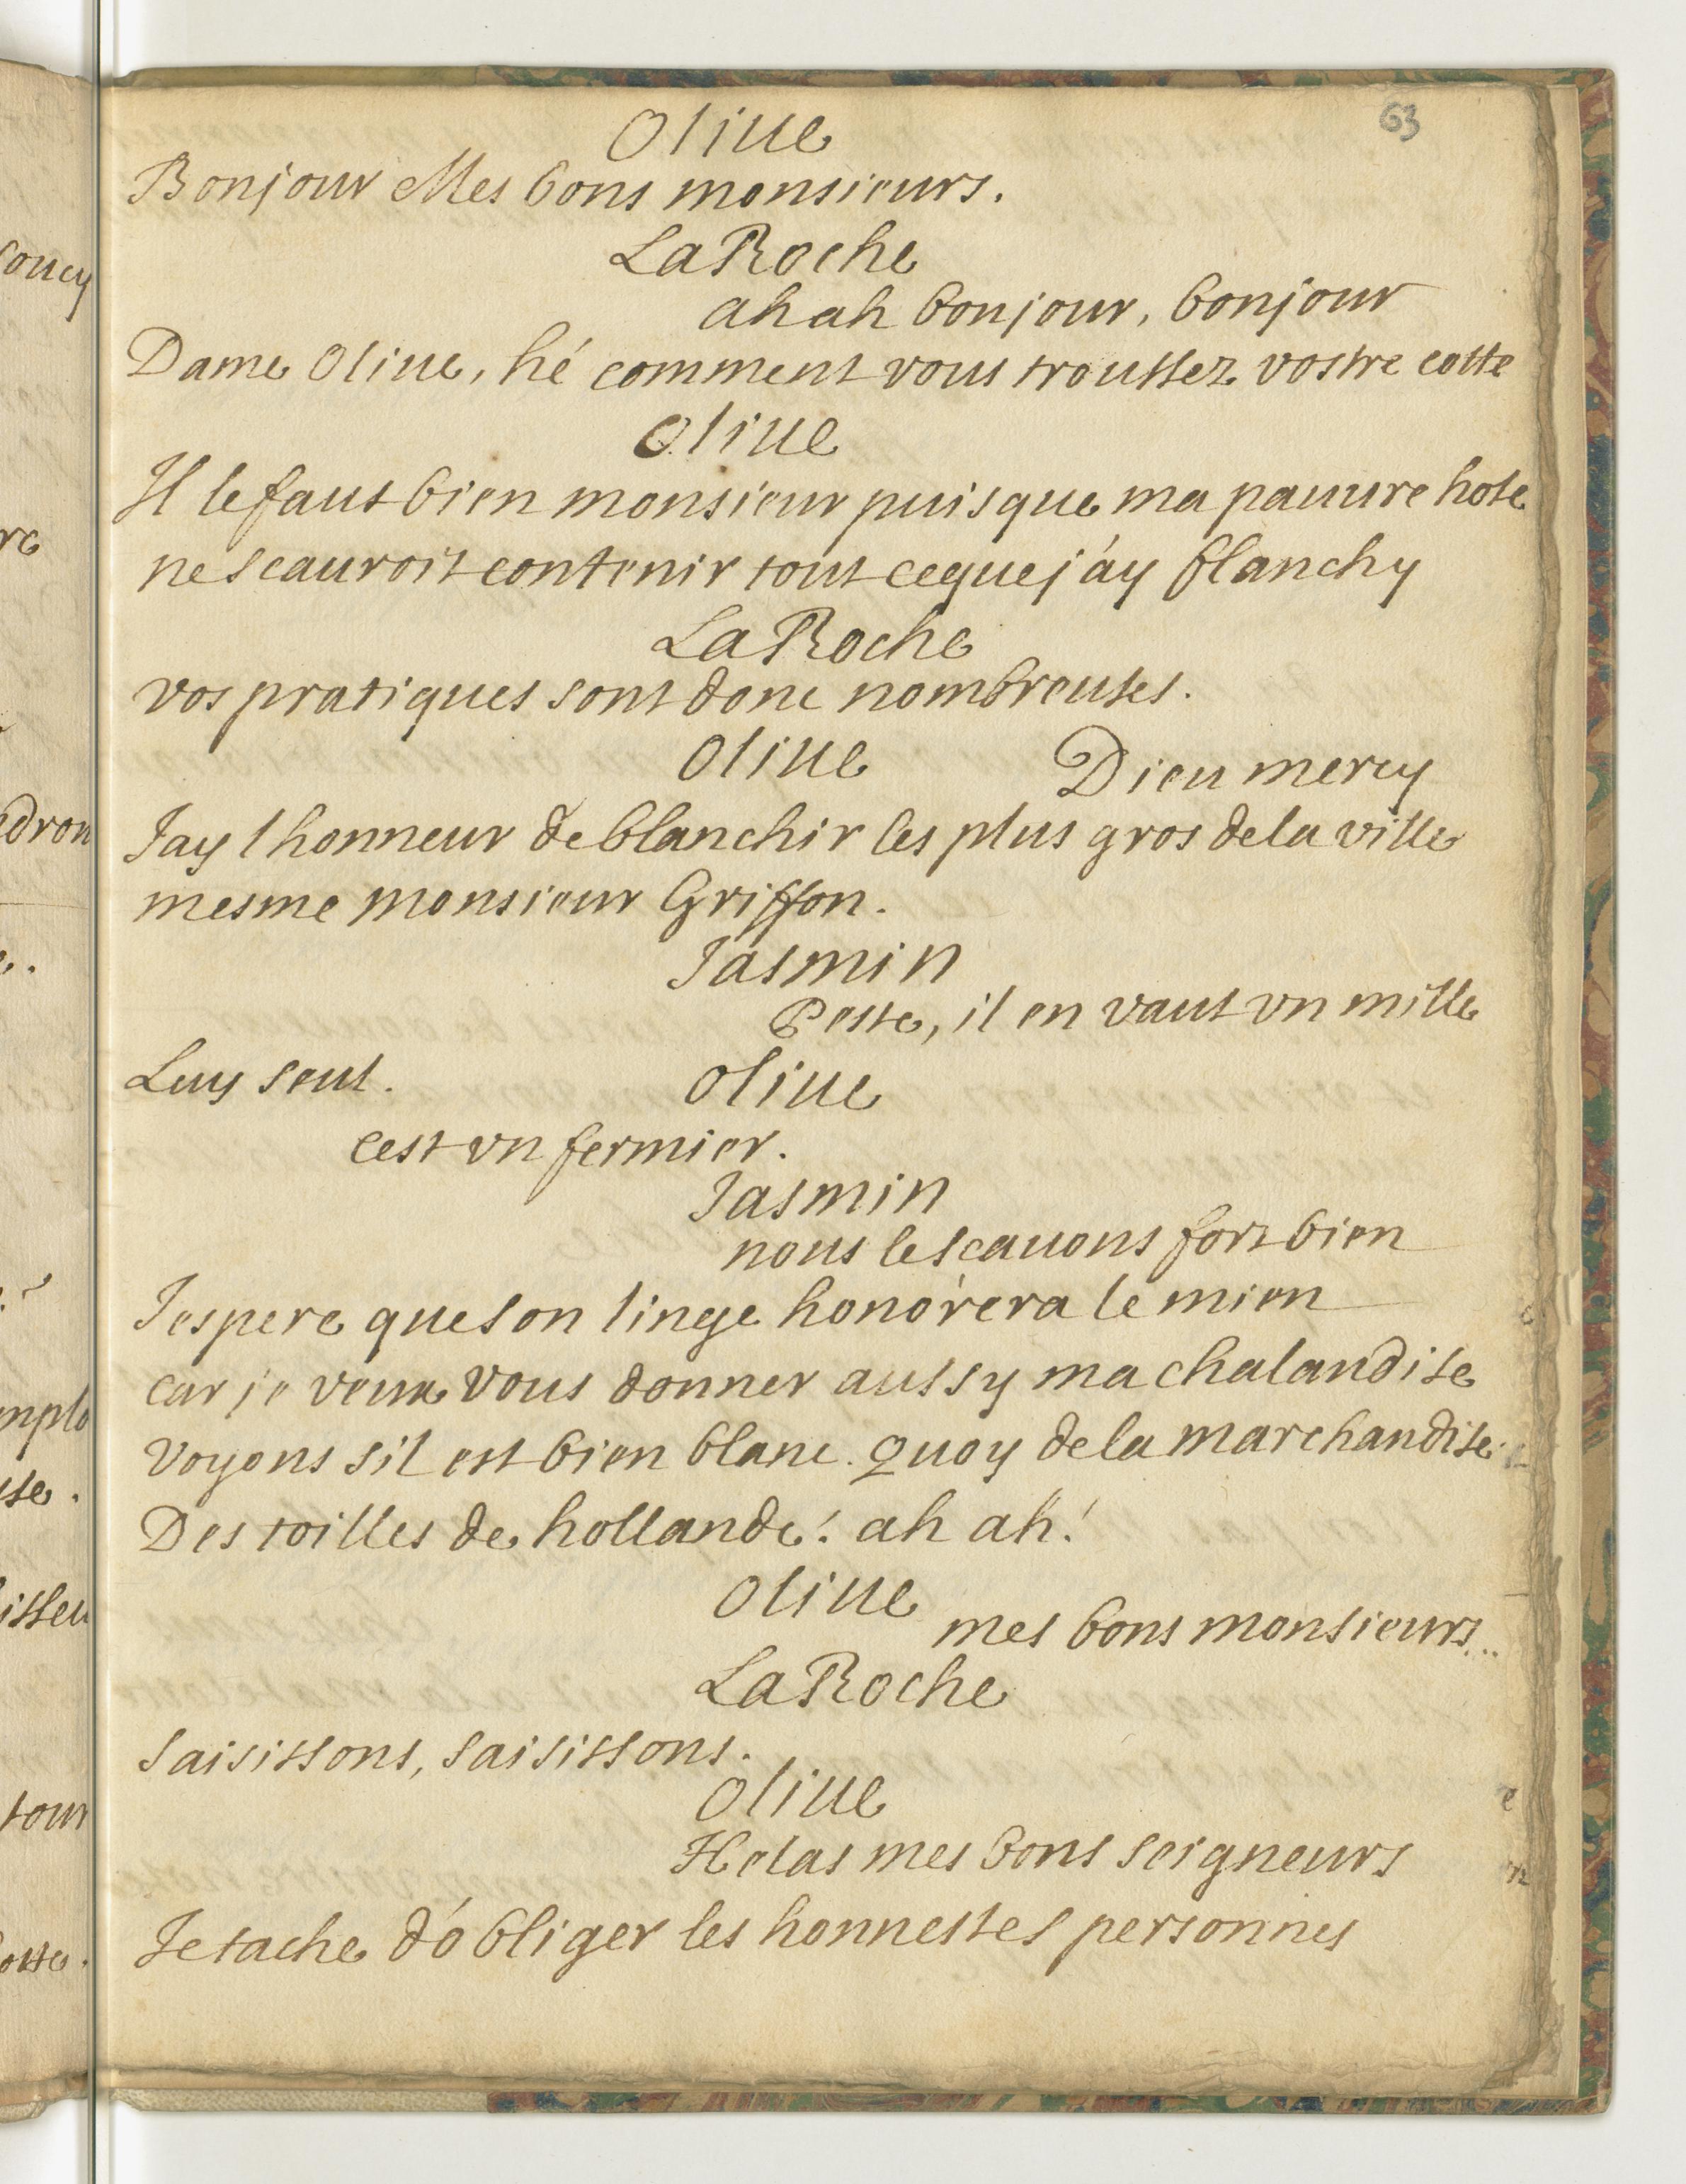 63
Oliue
Bonjour Mes bons monsieurs.
LaRoche
ah ah bonjour, bonjour
Dame Oliue, hé comment vous troussez vostre cotte
Oliue
Il le faut bien monsieur puisque ma pauure hote
ne scauroit contenir tout ce que j'ay blanchy
LaRoche
vos pratiques sont donc nombreuses.
Oliue
Dieu mercy
Jay lhonneur de blanchir les plus gros de la ville
mesme monsieur Griffon.
Jasmin
Peste, il en vaut vn mille
Luy seul.
Oliue
cest vn fermier.
Jasmin
nous le scauons fort bien
Jespere que son linge honorera le mien
car je veux vous donner aussy ma chalandise
voyons sil est bien blanc. quoy de la marchandise.
Des toilles de hollande! ah ah!
Oliue
mes bons monsieurs...
LaRoche
saisissons, saisissons.
Oliue
Helas mes bons seigneurs
Je tache d'obliger les honnestes personnes